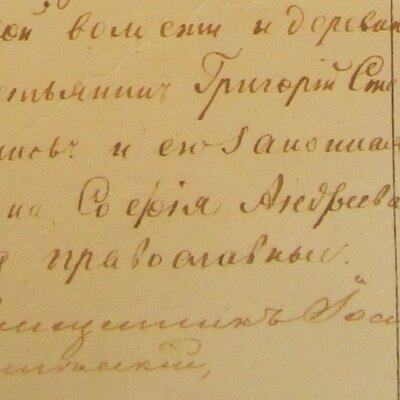 ой волости и деревни
стьянинъ Григорій Сте
новъ и его законная
на Софія Андреева
я православные.
вященникъ Іоа